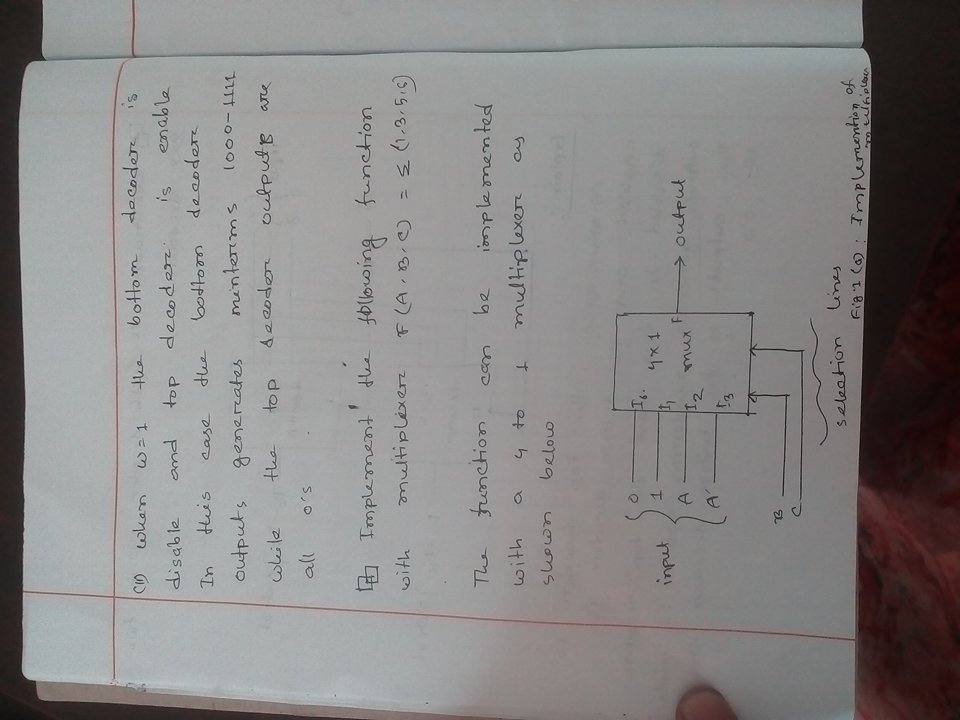 (II) when w=1 the bottom decoder is
disable and top decoder is enable
In this case the bottom decoder
outputs generates minterms 1000-1111
while the top decoder outputs are
all 0's
Implement the following function
with multiplexer F(A,B,C) = Σ(1,3,5,6)
The function can be implemented
with a 4 to 1 multiplexer as
shown below
input
0
1
A
A'
I0
I1
I2
I3
4x1
mux
F
output
B
C
selection lines
Fig 1(a): Implemention of
multiplexer